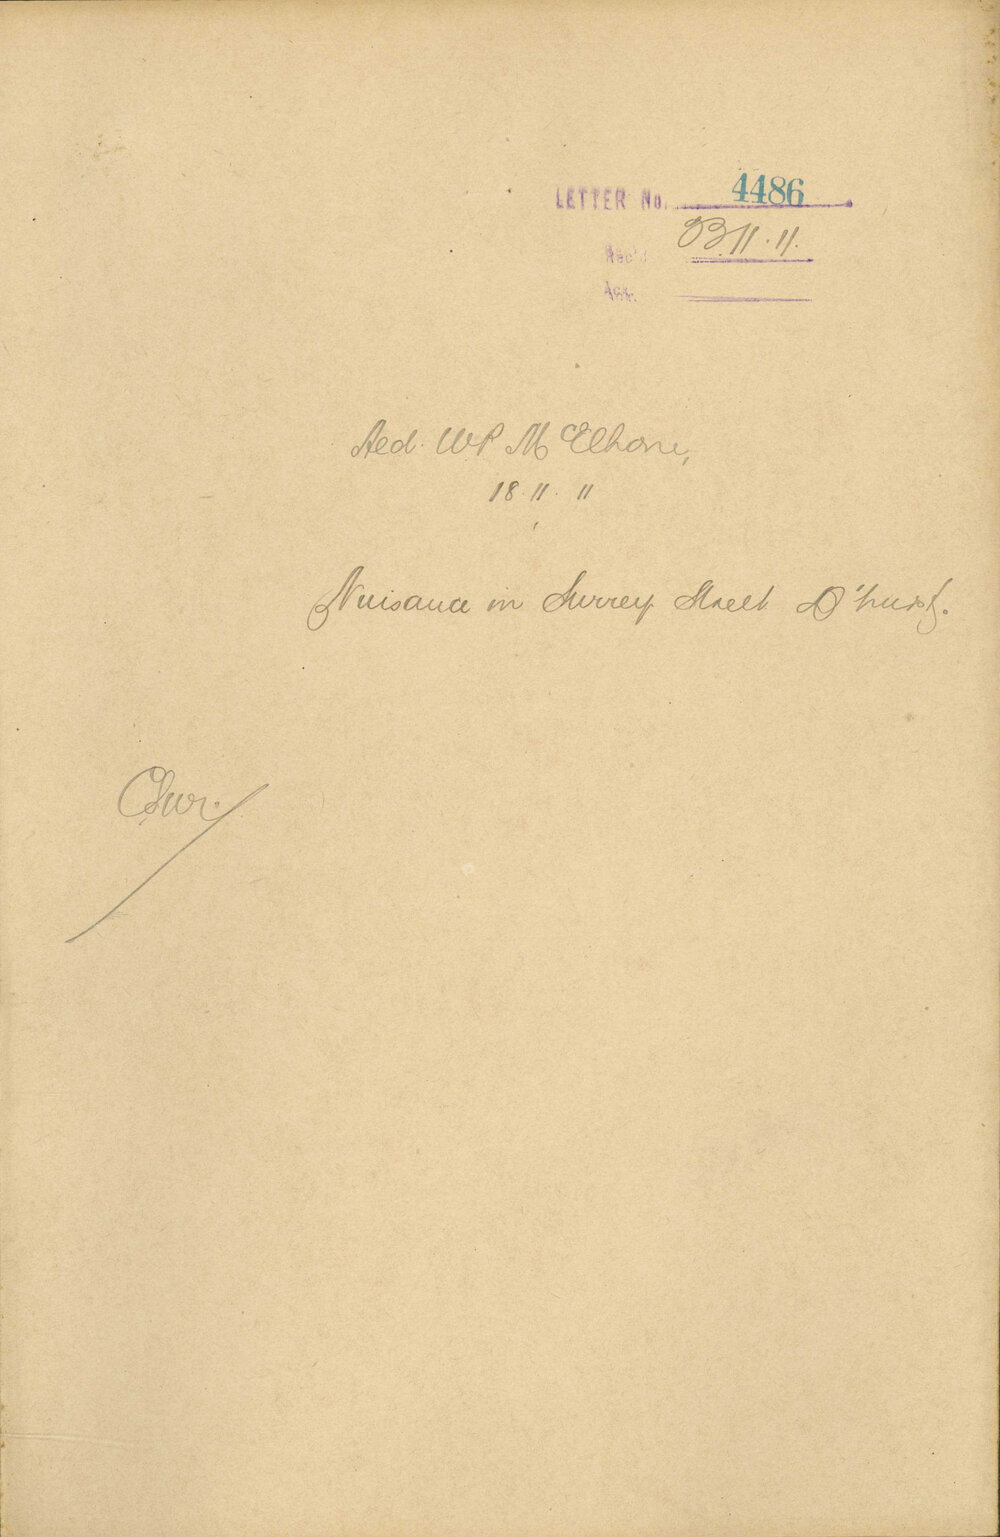 LETTER No. 4486
Rec'd 23.11.11.
Ack.
Aed. W P McElhone,
18.11.11
Nuisance in Surrey Street D'hurst.